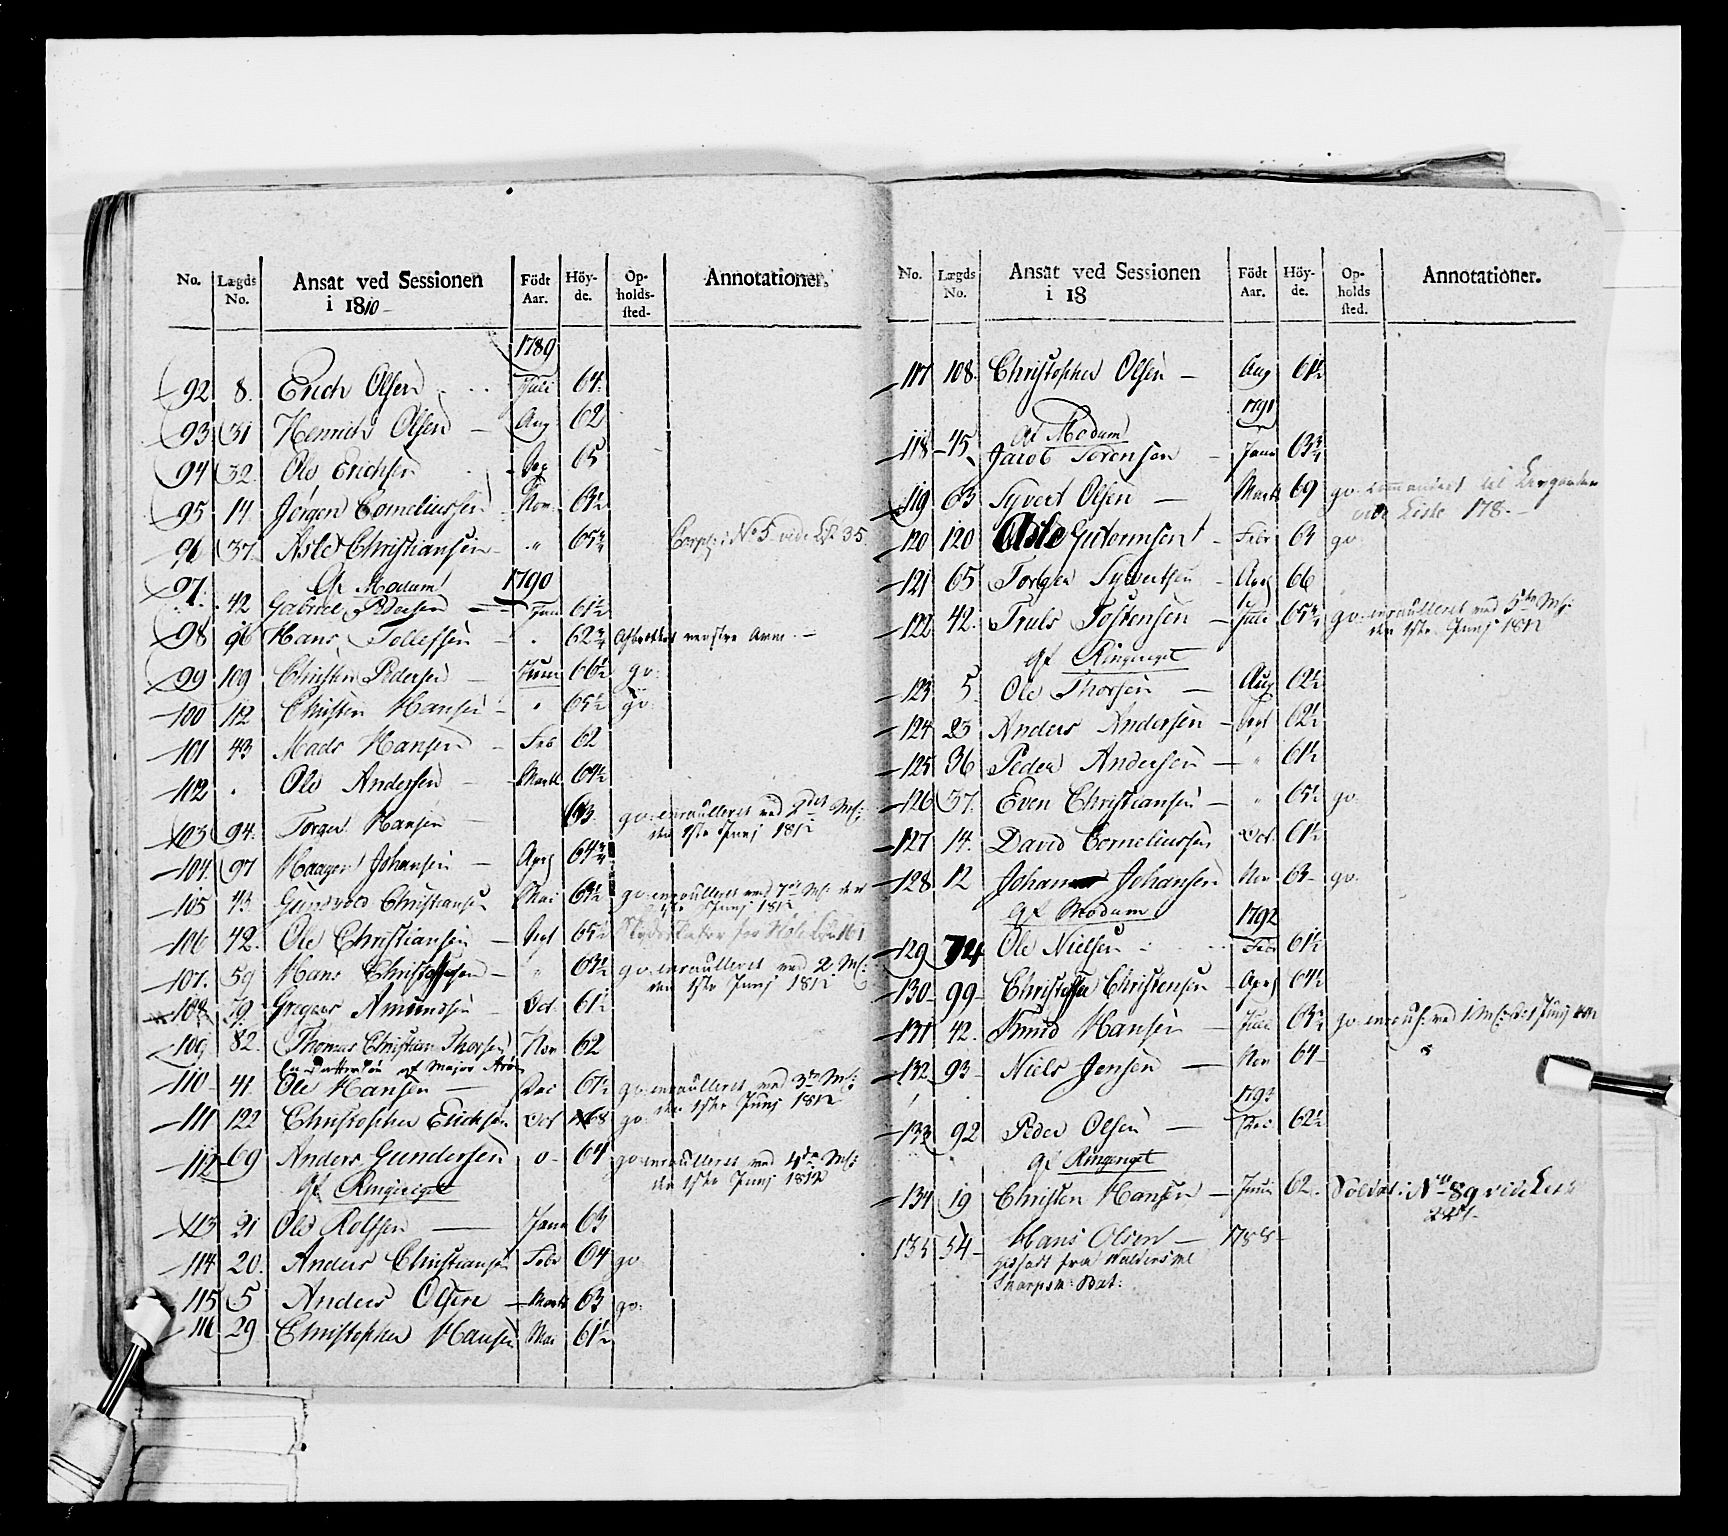 No. Lægds No. Ansat ved Sessionen i 1810 Födt Aar. Höyde. Opholdssted. Annotationer.
1789
92 8. Erich Olsen Juli 64.
93 31 Henrich Olsen Aug 62
94 32. Ole Erichsen Sep 65
95 14. Jörgen Corneliussen Nov. 63½
96 37. Christiansen " 65¾ Corpl: i No 5 vide L: 35
Af Modum 1790
97. 42 Gabriel Pedersen Jan 61½
98 96 Hans Tollefsen 62¾ venstre Arm
99 109 Christen Pedersen Jan 66½ go:
100 112 Christen Hansen " 65½ go:
101 43 Mads Hansen Feb 62
102 . Ole Andersen Marti 64½
103 94. Torger Hansen 63. go: enroulleret ved 2det Ms:
den 1ste Junj 1812
104. 97 Haagen Johansen Apr 64¾
105 43 Gundvold Christiansen Mai 63½ go: enroulleret ved Ms: den
1ste Junj 1812
106 42. Ole Christiansen Sept 65½
107. 59 Hans Christophersen " 63½ go: enroulleret ved 2 Ms:
den 1ste Junj 1812
108 79. Gregers Amundsen Oct. 61½
109. 82. Thomas Christian Thorsen Nov 62
af Major
110 41. Ole Hansen Dec 67½ go: enroulleret ved 3die Ms:
den 1ste Junj 1812
111 122 Christopher Erichsen Oct 68 go:
112 69 Anders Gundersen 64 go: enroulleret ved 4de Ms:
den 1ste Junj 1812
Af Ringeriget
113 21 Ole Rolfsen Janu 63
114 20. Anders Christiansen Febr 64 go
115 5 Anders Olsen Marti 63 go:
116 29 Christopher Hansen Mai 61½
No. Lægds No. Ansat ved Sessionen i 18 Födt Aar. Höyde. Opholds sted. Annotationer.
117 108. Christopher Olsen Aug 61½
1791
Af Modum
118 45 Jacob Sörensen Janu 63¾
119 63 Syvert Olsen Marti 69 go: commandert til Livgarden
vide Liste 178.
120 120 Guttormsen Febr 63 go:
121 65 Torger Syvertsen Apr 66
122 42. Truls Tostensen Juli 65¾ go: enroulleret ved 5te Ms:
den 1ste Junj 1812
Af Ringeriget
123 5. Ole Thorsen Aug 62½
124 23 Anders Andersen Sept 62½
125 36 Peder Andersen " 61½
126 37. Even Christiansen " 65½ go:
127 14. David Corneliussen Oct. 61½
128 12 Johan Johansen Nov 63 go:
Af Modum 1792
129 74 Ole Nielsen Feb 61½
130 99 Christensen Apr 64½
131 42. Knud Hansen Juli 63¾ go:
132 93 Niels Jensen Nov 64
1793
133 92 Peder Olsen 62½
Af Ringeriget
134 19 Christen Hansen Juni 62. Soldat: i No 89 vide Liste
135 54 Hans Olsen 1788
fra Valderske
Skarpsk: Bat: